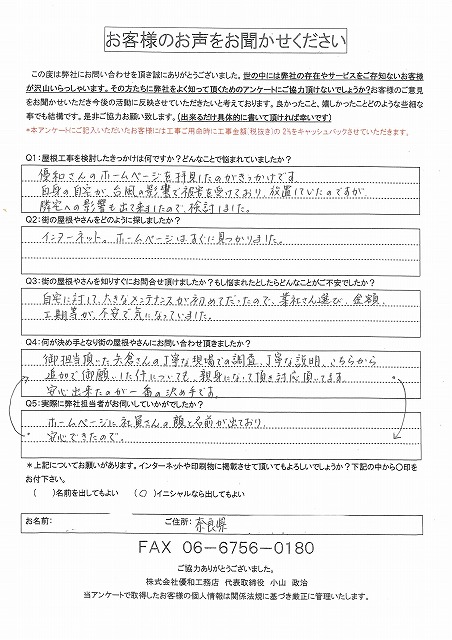 お客様のお声をお聞かせください
この度は弊社にお問い合わせを頂き誠にありがとうございました。世の中には弊社の存在やサービスをご存知ないお客様
が沢山いらっしゃいます。その方たちに弊社をよく知って頂くためのアンケートにご協力頂けないでしょうか?お客様のご意見
をお聞かせいただき今後の活動に反映させていただきたいと考えております。良かったこと、嬉しかったことどのような些細な
事でも結構です。是非ご協力お願い致します。(出来るだけ具体的に書いて頂ければ幸いです)
*本アンケートにご記入いただいたお客様には工事ご用命時に工事金額(税抜き)の2%をキャッシュバックさせていただきます。
Q1:屋根工事を検討したきっかけは何ですか?どんなことで悩まれていましたか?
優和さんのホームページを拝見したのがきっかけです
自身の自宅が、台風の影響で被害を受けており、放置していたのですが
隣宅への影響も出て来ましたので、検討しました。
Q2:街の屋根やさんをどのように探しましたか?
インターネット。ホームページはすぐに見つかりました。
Q3:街の屋根やさんを知りすぐにお問合せ頂けましたか?もし悩まれたとしたらどんなことがご不安でしたか?
自宅に対して、大きなメンテナンスが初めてだったので、業社さん選び、金額、
工期等が、不安で気になっていました。
Q4:何が決め手となり街の屋根やさんにお問い合わせ頂きましたか?
御担当頂いた矢倉さんの丁寧な現場での調査、丁寧な説明、こちらから
追加で御願いした件についても、親身になって頂き対応頂いてます
安心出来たのが一番の決め手です。
Q5:実際に弊社担当者がお伺いしていかがでしたか?
ホームページに社員さんの顔と名前が出ており、
安心できたので。
*上記についてお願いがあります。インターネットや印刷物に掲載させて頂いてもよろしいでしょうか?下記の中から〇印を
お付下さい。
( )名前を出してもよい (〇)イニシャルなら出してもよい
お名前: ご住所: 奈良県
FAX 06-6756-0180
ご協力ありがとうございました。
株式会社優和工務店 代表取締役 小山 政治
当アンケートで取得したお客様の個人情報は関係法規に基づき厳正に管理いたします。